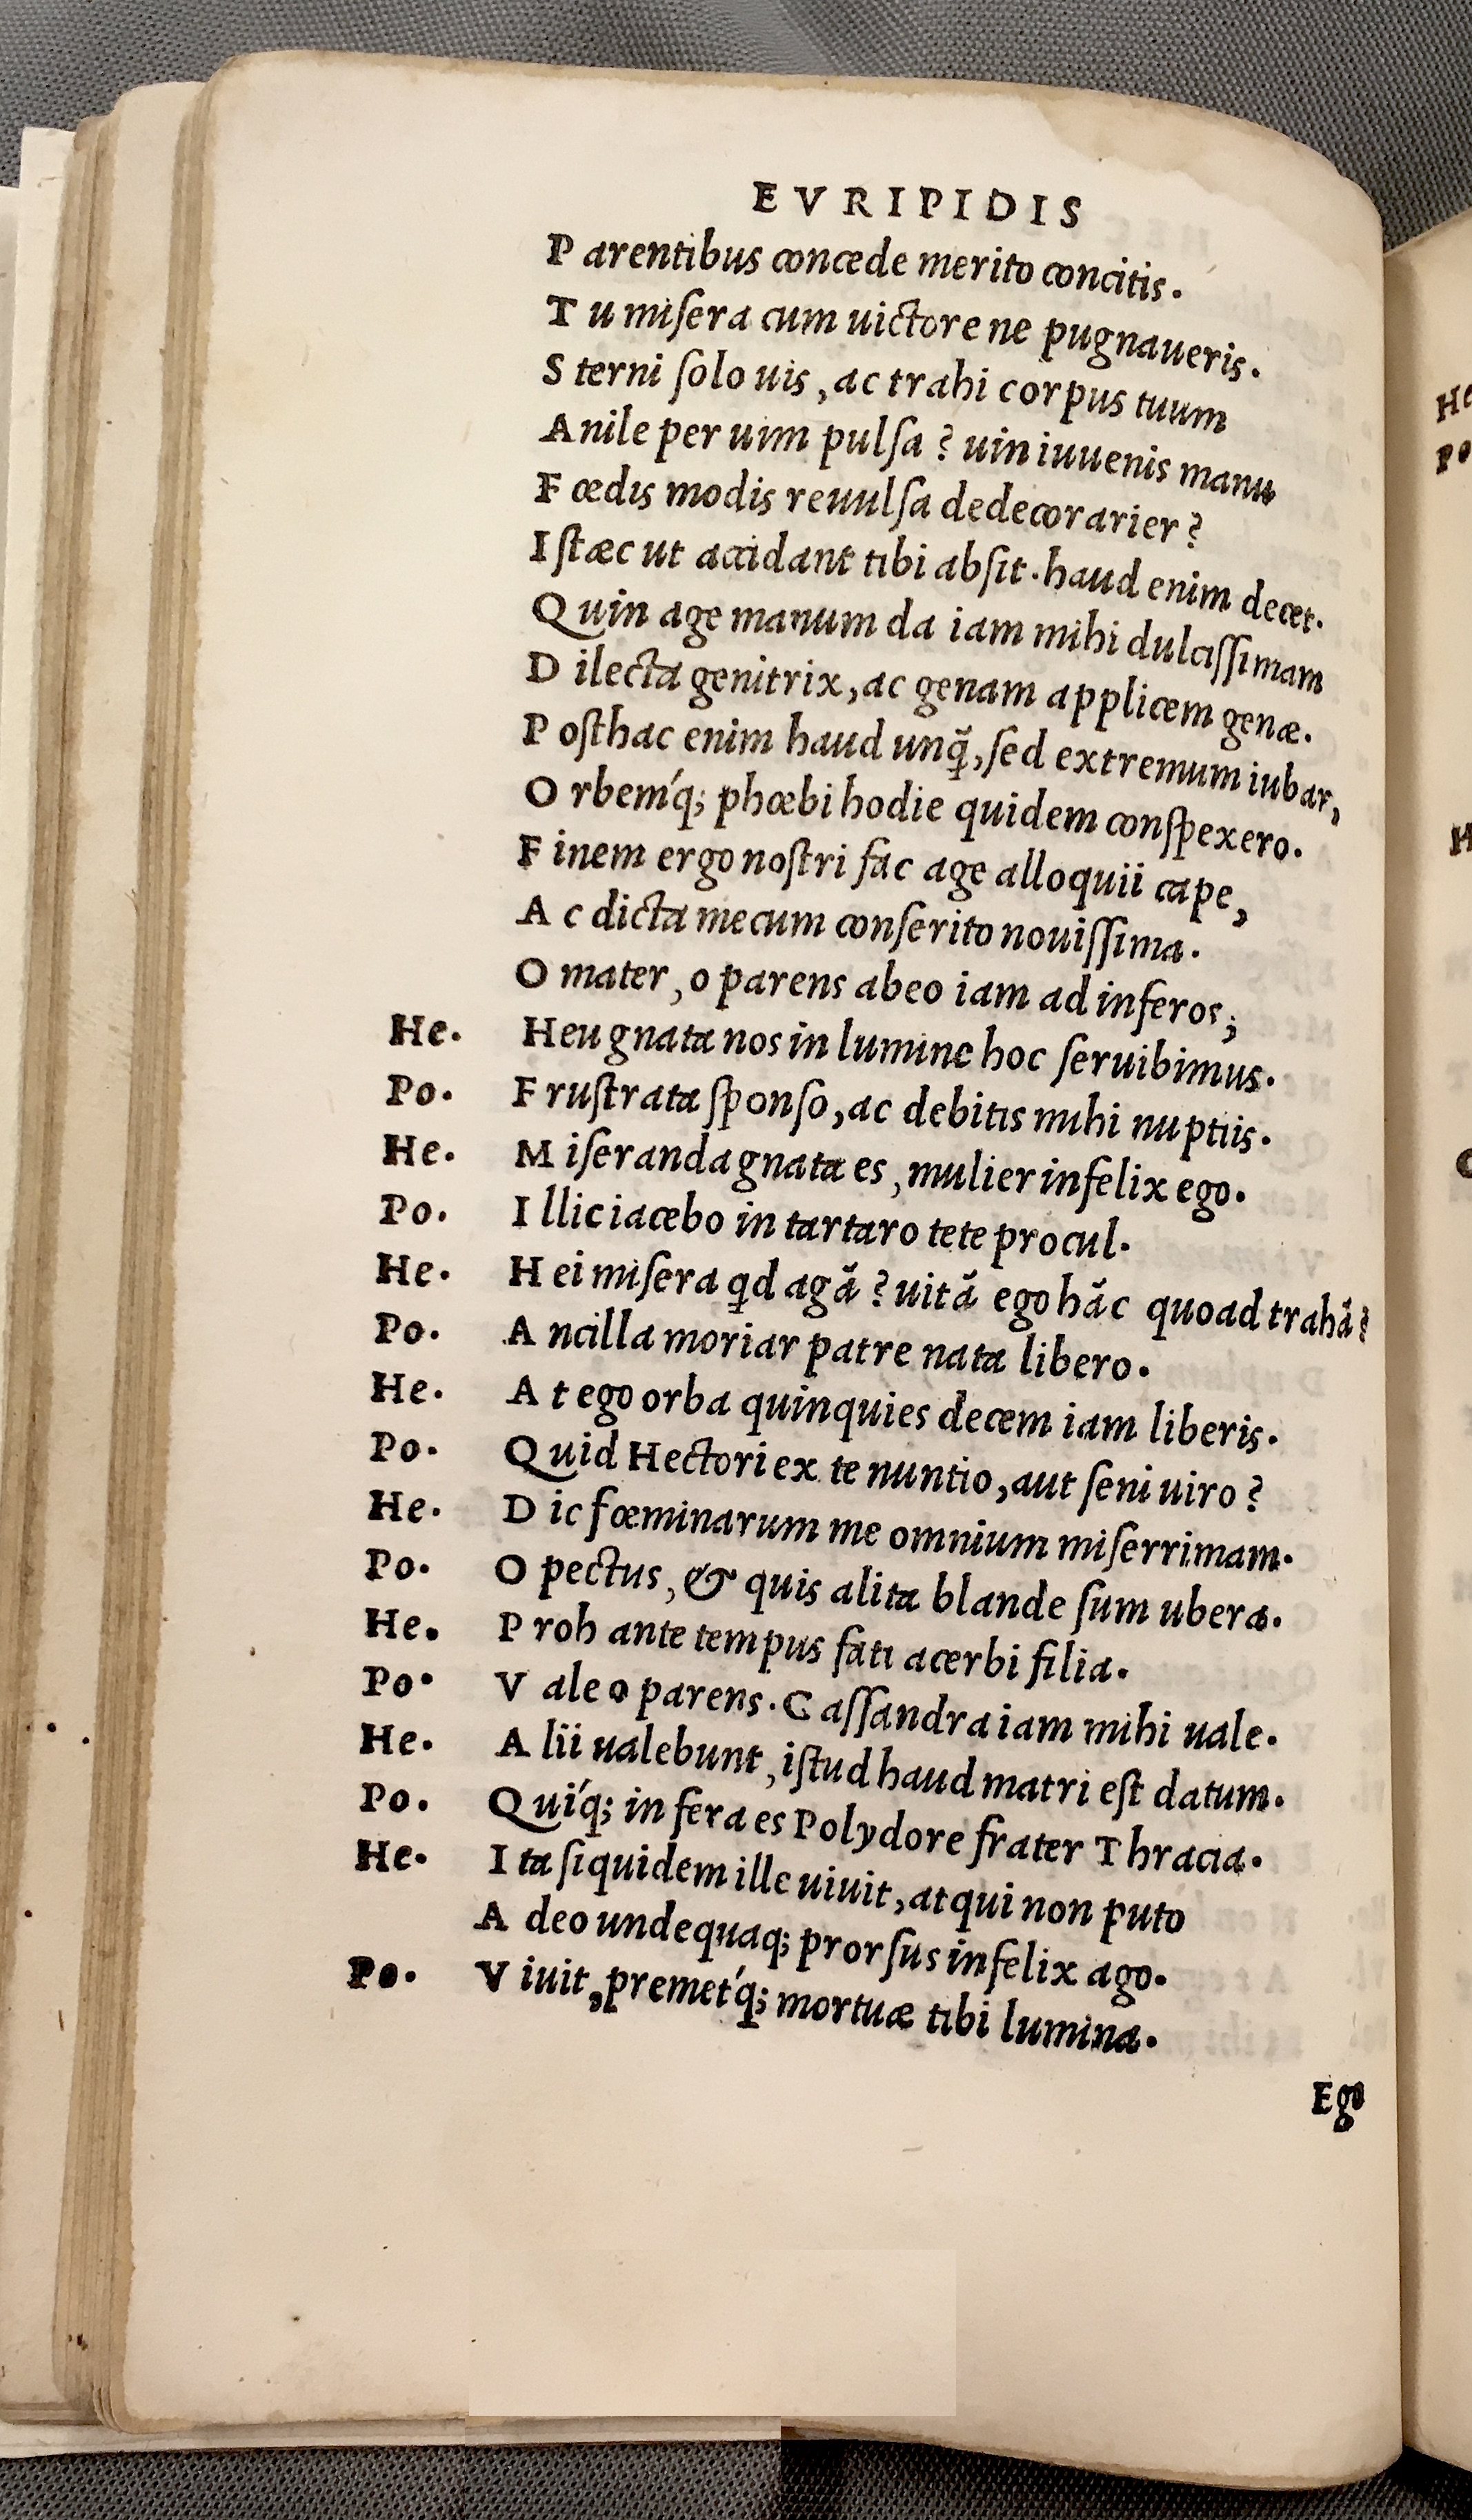 EVRIPIDIS
P arentibus concede merito concitis.
T u misera cum uictore ne pugnaueris.
S terni solo uis, ac trahi corpus tuum
A nile per uim pulsa? uin iuuenis manu
F œdis modis reuulsa dedecorarier?
I stæc ut accidant tibi absit. haud enim decet.
Q uin age manum da iam mihi dulcissimam
D ilecta genitrix, ac genam applicem genæ.
P osthac enim haud unq̃, sed extremum iubar,
O rbem'q; phœbi hodie quidem conspexero.
F inem ergo nostri fac age alloquii cape,
A c dicta mecum conserito nouissima.
O mater, o parens abeo iam ad inferos;
He. Heu gnata nos in lumine hoc seruibimus.
Po. F rustrata sponso, ac debitis mihi nuptiis.
He. M iseranda gnata es, mulier infelix ego.
Po. I llic iacebo in tartaro tete procul.
He. H ei misera qd agã? uitã ego hãc quoad trahã?
Po. A ncilla moriar patre nata libero.
He. A t ego orba quinquies decem iam liberis.
Po. Q uid Hectori ex te nuntio, aut seni uiro?
He. D ic fœminarum me omnium miserrimam.
Po. O pectus, & quis alita blande sum ubera.
He. P roh ante tempus fati acerbi filia.
Po. V ale o parens. C assandra iam mihi uale.
He. A lii ualebunt, istud haud matri est datum.
Po. Q uí'q; in fera es Polydore frater Thracia.
He. I ta siquidem ille uiuit, atqui non puto
A deo undequaq; prorsus infelix ago.
Po. V iuit, premet'q; mortuæ tibi lumina.
Ego